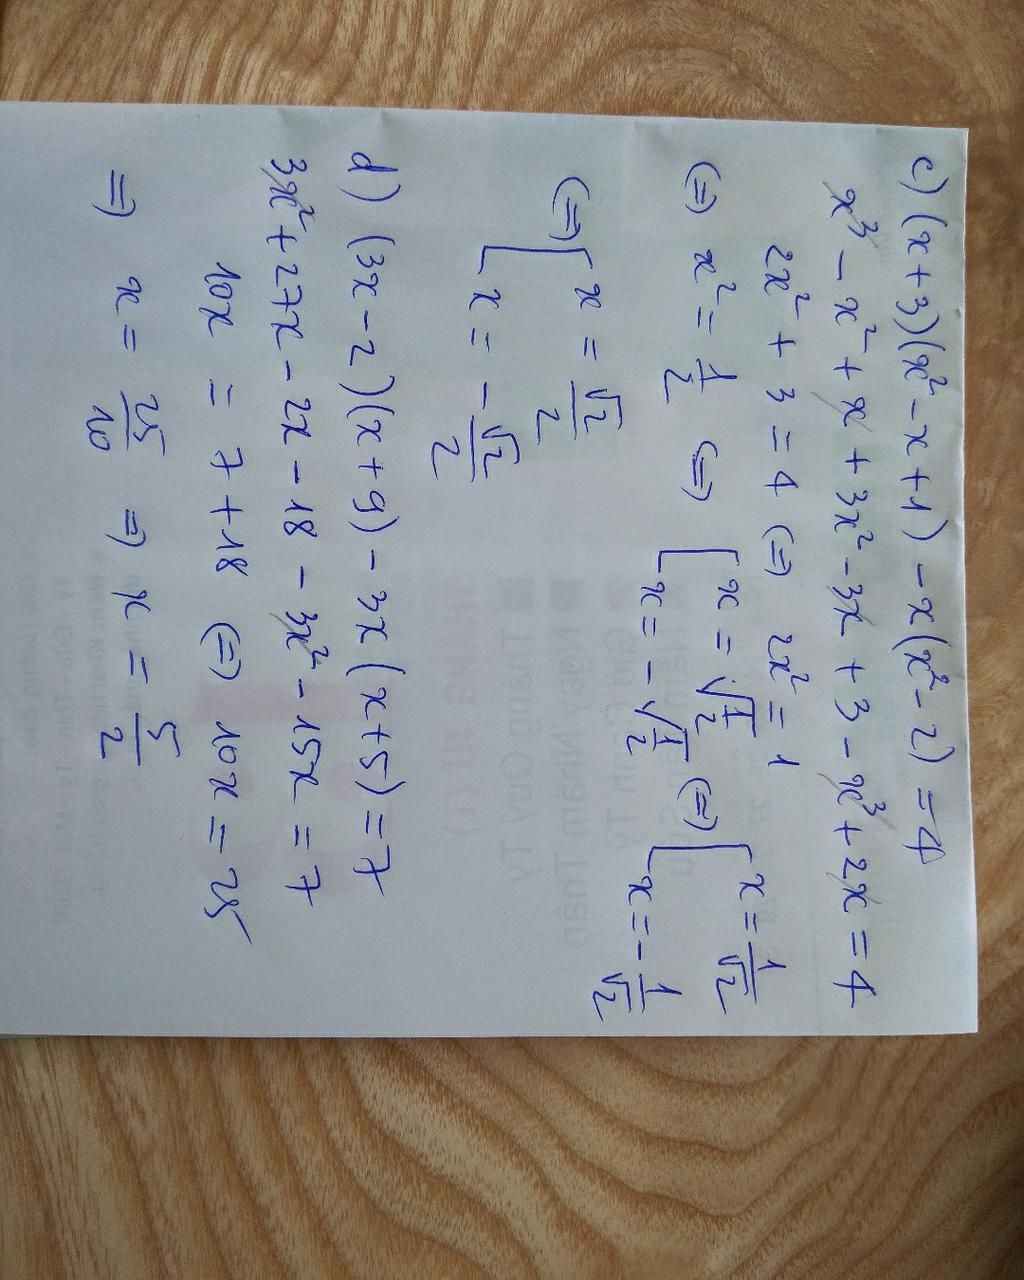 c) (x+3)(x² - x + 1) - x(x² - 2) = 4
x³ - x² + x + 3x² - 3x + 3 - x³ + 2x = 4
2x² + 3 = 4 (=) 2x² = 1
(=) x² = 1/2 (=) [ x = √1/2 (=) [ x = 1/√2
x = -√1/2 x = -1/√2
(=) [ x = √2/2
x = -√2/2
d) (3x - 2)(x + 9) - 3x(x+5) = 7
3x² + 27x - 2x - 18 - 3x² - 15x = 7
10x = 7 + 18 (=) 10x = 25
=) x = 25/10 =) x = 5/2